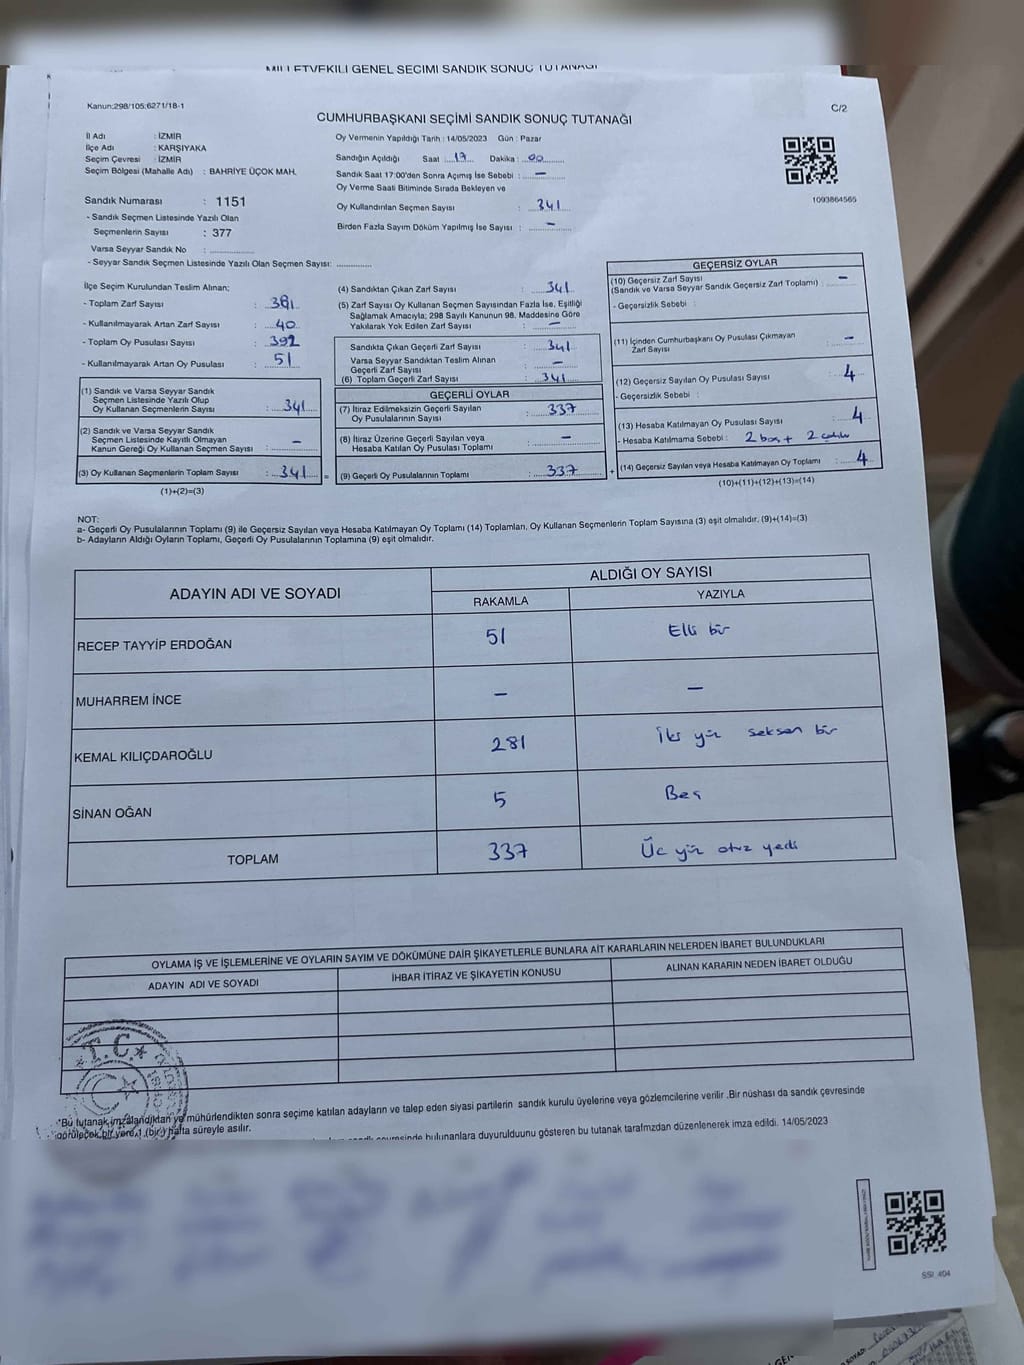 MİLLETVEKİLİ GENEL SEÇİMİ SANDIK SONUÇ TUTANAĞI
Kanun:298/105;6271/18-1
C/2
CUMHURBAŞKANI SEÇİMİ SANDIK SONUÇ TUTANAĞI
İl Adı : İZMİR
İlçe Adı : KARŞIYAKA
Seçim Çevresi : İZMİR
Seçim Bölgesi (Mahalle Adı) : BAHRİYE ÜÇOK MAH.
Sandık Numarası : 1151
- Sandık Seçmen Listesinde Yazılı Olan
Seçmenlerin Sayısı : 377
Varsa Seyyar Sandık No :
- Seyyar Sandık Seçmen Listesinde Yazılı Olan Seçmen Sayısı:
Oy Vermenin Yapıldığı Tarih : 14/05/2023 Gün : Pazar
Sandığın Açıldığı Saat : 17 Dakika : 00
Sandık Saat 17:00'den Sonra Açımış İse Sebebi : —
Oy Verme Saati Bitiminde Sırada Bekleyen ve
Oy Kullandırılan Seçmen Sayısı : 341
Birden Fazla Sayım Döküm Yapılmış İse Sayısı : —
1093864565
İlçe Seçim Kurulundan Teslim Alınan;
- Toplam Zarf Sayısı : 381
- Kullanılmayarak Artan Zarf Sayısı : 40
- Toplam Oy Pusulası Sayısı : 392
- Kullanılmayarak Artan Oy Pusulası : 51
(1) Sandık ve Varsa Seyyar Sandık
Seçmen Listesinde Yazılı Olup
Oy Kullanan Seçmenlerin Sayısı : 341
(2) Sandık ve Varsa Seyyar Sandık
Seçmen Listesinde Kayıtlı Olmayan
Kanun Gereği Oy Kullanan Seçmen Sayısı : —
(3) Oy Kullanan Seçmenlerin Toplam Sayısı : 341 =
(1)+(2)=(3)
(4) Sandıktan Çıkan Zarf Sayısı : 341
(5) Zarf Sayısı Oy Kullanan Seçmen Sayısından Fazla İse, Eşitliği
Sağlamak Amacıyla; 298 Sayılı Kanunun 98. Maddesine Göre
Yakılarak Yok Edilen Zarf Sayısı : —
Sandıkta Çıkan Geçerli Zarf Sayısı : 341
Varsa Seyyar Sandıktan Teslim Alınan
Geçerli Zarf Sayısı : —
(6) Toplam Geçerli Zarf Sayısı : 341
GEÇERLİ OYLAR
(7) İtiraz Edilmeksizin Geçerli Sayılan
Oy Pusulalarının Sayısı : 337
(8) İtiraz Üzerine Geçerli Sayılan veya
Hesaba Katılan Oy Pusulası Toplamı : —
(9) Geçerli Oy Pusulalarının Toplamı : 337 +
GEÇERSİZ OYLAR
(10) Geçersiz Zarf Sayısı
(Sandık ve Varsa Seyyar Sandık Geçersiz Zarf Toplamı) : —
- Geçersizlik Sebebi :
(11) İçinden Cumhurbaşkanı Oy Pusulası Çıkmayan
Zarf Sayısı : —
(12) Geçersiz Sayılan Oy Pusulası Sayısı : 4
- Geçersizlik Sebebi :
(13) Hesaba Katılmayan Oy Pusulası Sayısı : 4
- Hesaba Katılmama Sebebi : 2 boş + 2
(14) Geçersiz Sayılan veya Hesaba Katılmayan Oy Toplamı : 4
(10)+(11)+(12)+(13)=(14)
NOT:
a- Geçerli Oy Pusulalarının Toplamı (9) ile Geçersiz Sayılan veya Hesaba Katılmayan Oy Toplamı (14) Toplamları, Oy Kullanan Seçmenlerin Toplam Sayısına (3) eşit olmalıdır. (9)+(14)=(3)
b- Adayların Aldığı Oyların Toplamı, Geçerli Oy Pusulalarının Toplamına (9) eşit olmalıdır.
ADAYIN ADI VE SOYADI
ALDIĞI OY SAYISI
RAKAMLA YAZIYLA
RECEP TAYYİP ERDOĞAN 51 Elli bir
MUHARREM İNCE — —
KEMAL KILIÇDAROĞLU 281 İki yüz seksen bir
SİNAN OĞAN 5 Beş
TOPLAM 337 Üç yüz otuz yedi
OYLAMA İŞ VE İŞLEMLERİNE VE OYLARIN SAYIM VE DÖKÜMÜNE DAİR ŞİKAYETLERLE BUNLARA AİT KARARLARIN NELERDEN İBARET BULUNDUKLARI
ADAYIN ADI VE SOYADI İHBAR İTİRAZ VE ŞİKAYETİN KONUSU ALINAN KARARIN NEDEN İBARET OLDUĞU
T.C.
*Bu tutanak imzalandıktan ve mühürlendikten sonra seçime katılan adayların ve talep eden siyasi partilerin sandık kurulu üyelerine veya gözlemcilerine verilir .Bir nüshası da sandık çevresinde
görülecek bir yere 1 (bir) hafta süreyle asılır.
sandık çevresinde bulunanlara duyurulduunu gösteren bu tutanak tarafmzdan düzenlenerek imza edildi. 14/05/2023
SSI_404